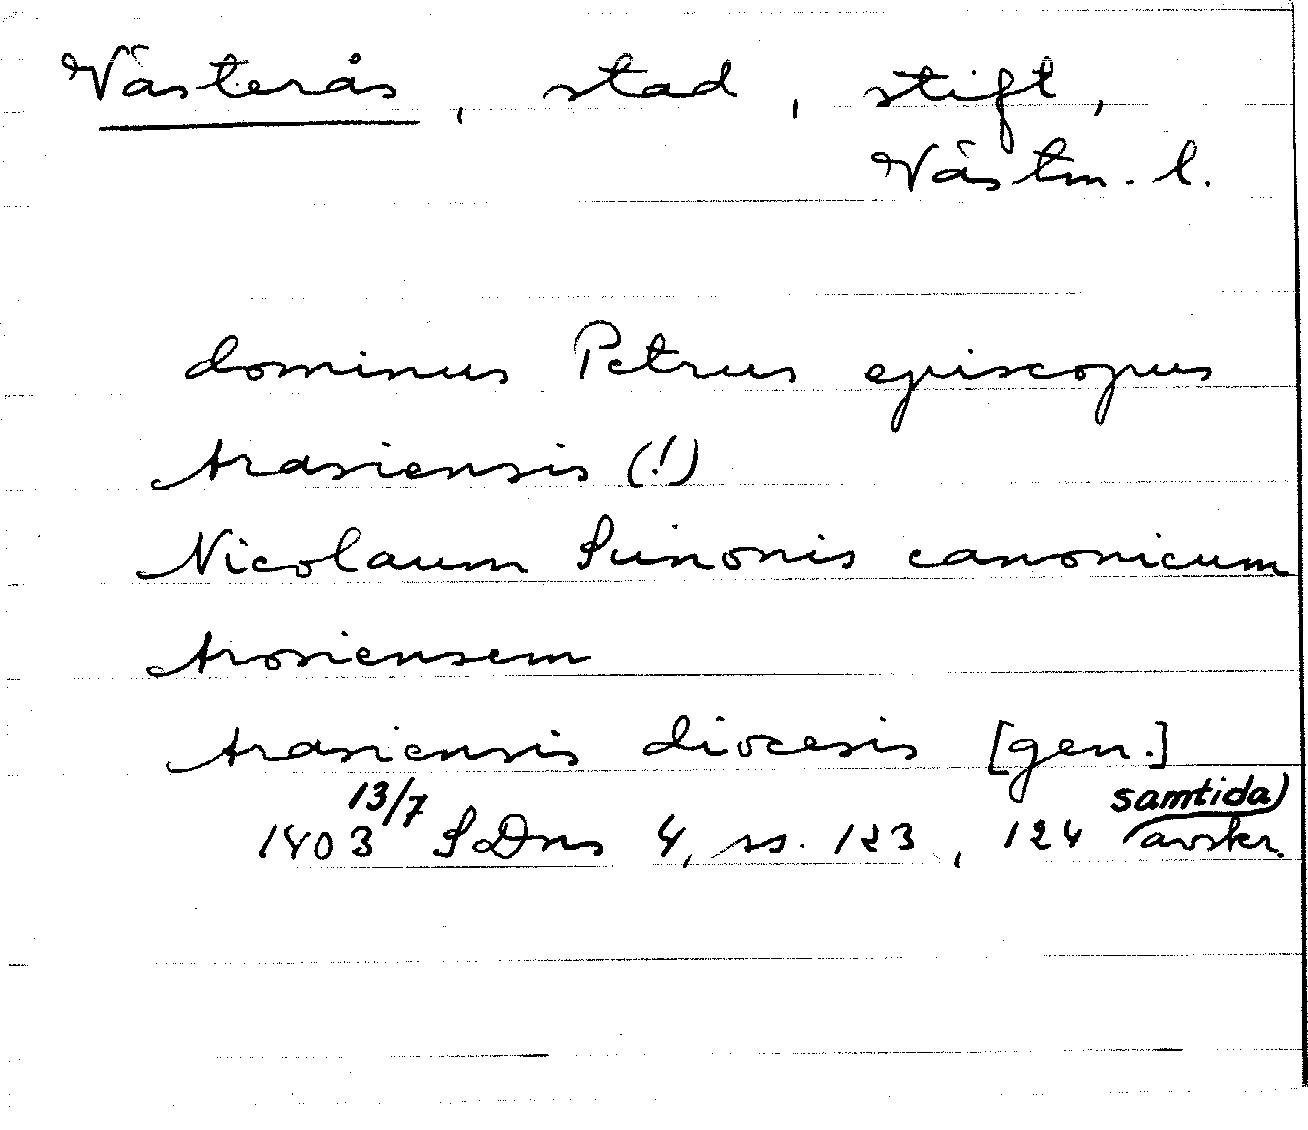 Västerås, stad, stift,
Västm. l.
dominus Petrus episcopus
Arasiensis (!)
Nicolaum Sunonis canonicum
Arosiensem
Arasiensis diocesis [gen.]
1403 13/7 SDns 4, ss. 123, 124 samtida avskr.